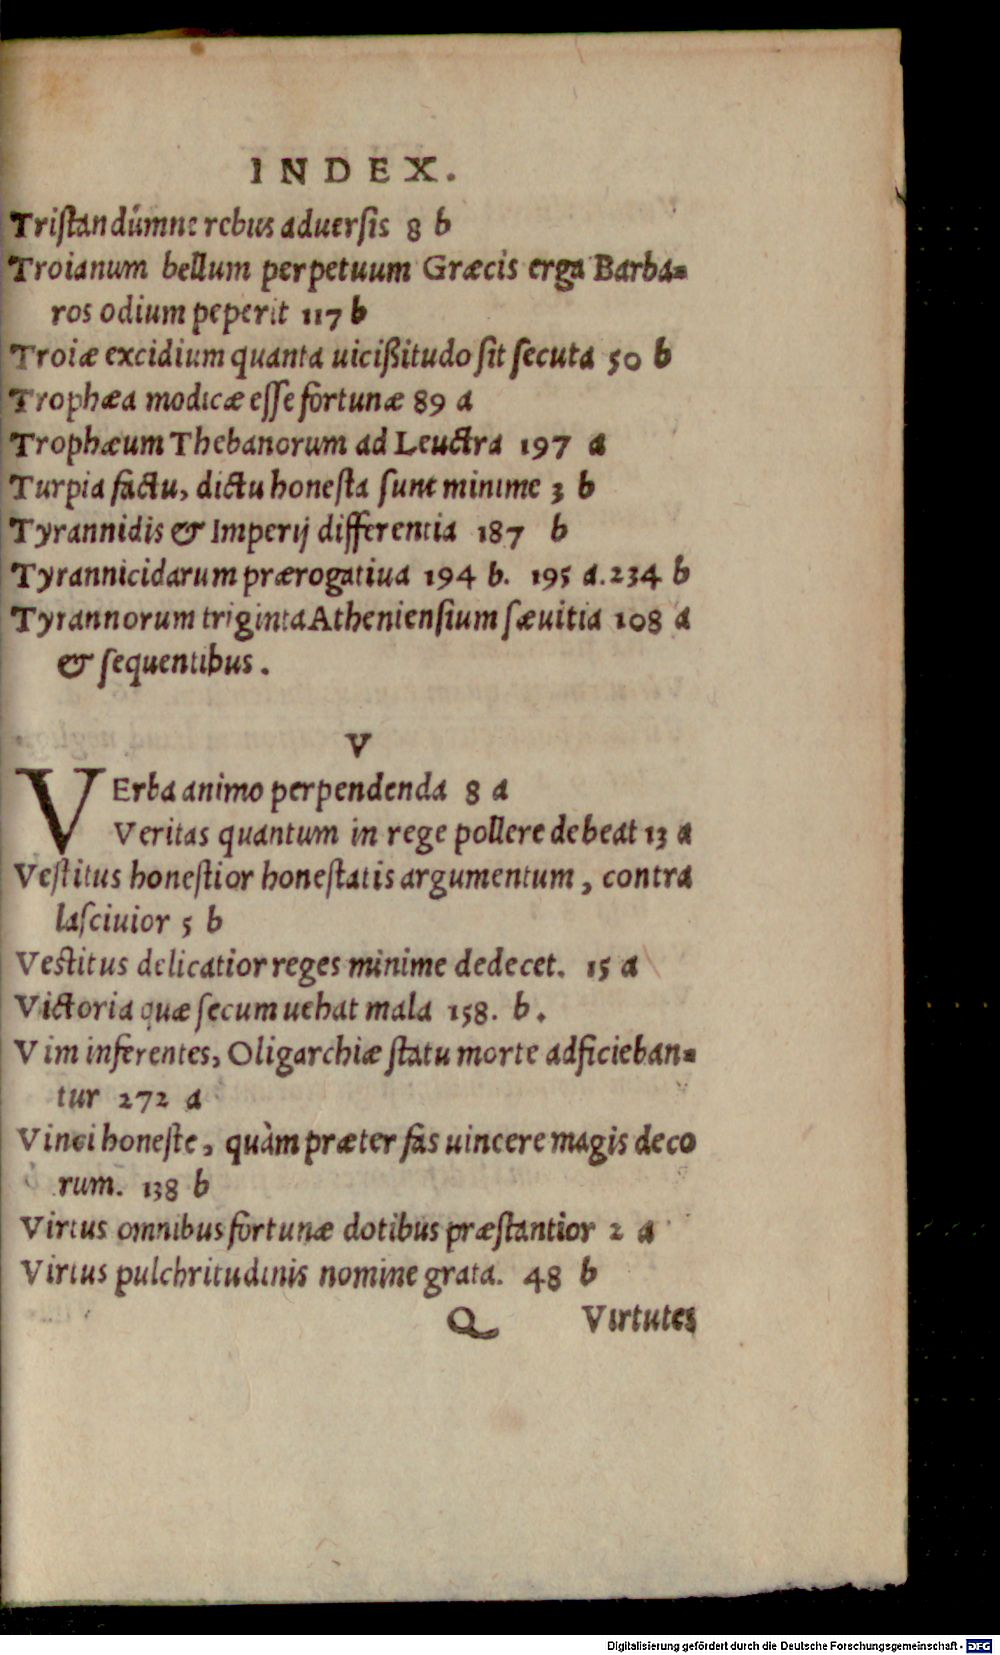 INDEX.
Tristandúmne rebus aduersis 8 b
Troianum bellum perpetuum Græcis erga Barba=
ros odium peperit 117 b
Troiæ excidium quanta uicißitudo sit secuta 50 b
Trophæa modicæ esse fortunæ 89 a
Trophæum Thebanorum ad Leuctra 197 a
Turpia factu, dictu honesta sunt minime 3 b
Tyrannidis & Imperij differentia 187 b
Tyrannicidarum prærogatiua 194 b. 195 a. 234 b
Tyrannorum triginta Atheniensium sæuitia 108 a
& sequentibus.
V
VErba animo perpendenda 8 a
Veritas quantum in rege pollere debeat 13 a
Vestitus honestior honestatis argumentum, contra
lasciuior 5 b
Vestitus delicatior reges minime dedecet. 15 a
Victoria quæ secum uehat mala 158. b.
Vim inferentes, Oligarchiæ statu morte adficieban=
tur 272 a
Vinci honeste, quàm præter fas uincere magis deco
rum. 138 b
Virtus omnibus fortunæ dotibus præstantior 2 a
Virtus pulchritudinis nomine grata. 48 b
Q Virtutes
Digitalisierung gefördert durch die Deutsche Forschungsgemeinschaft - DFG